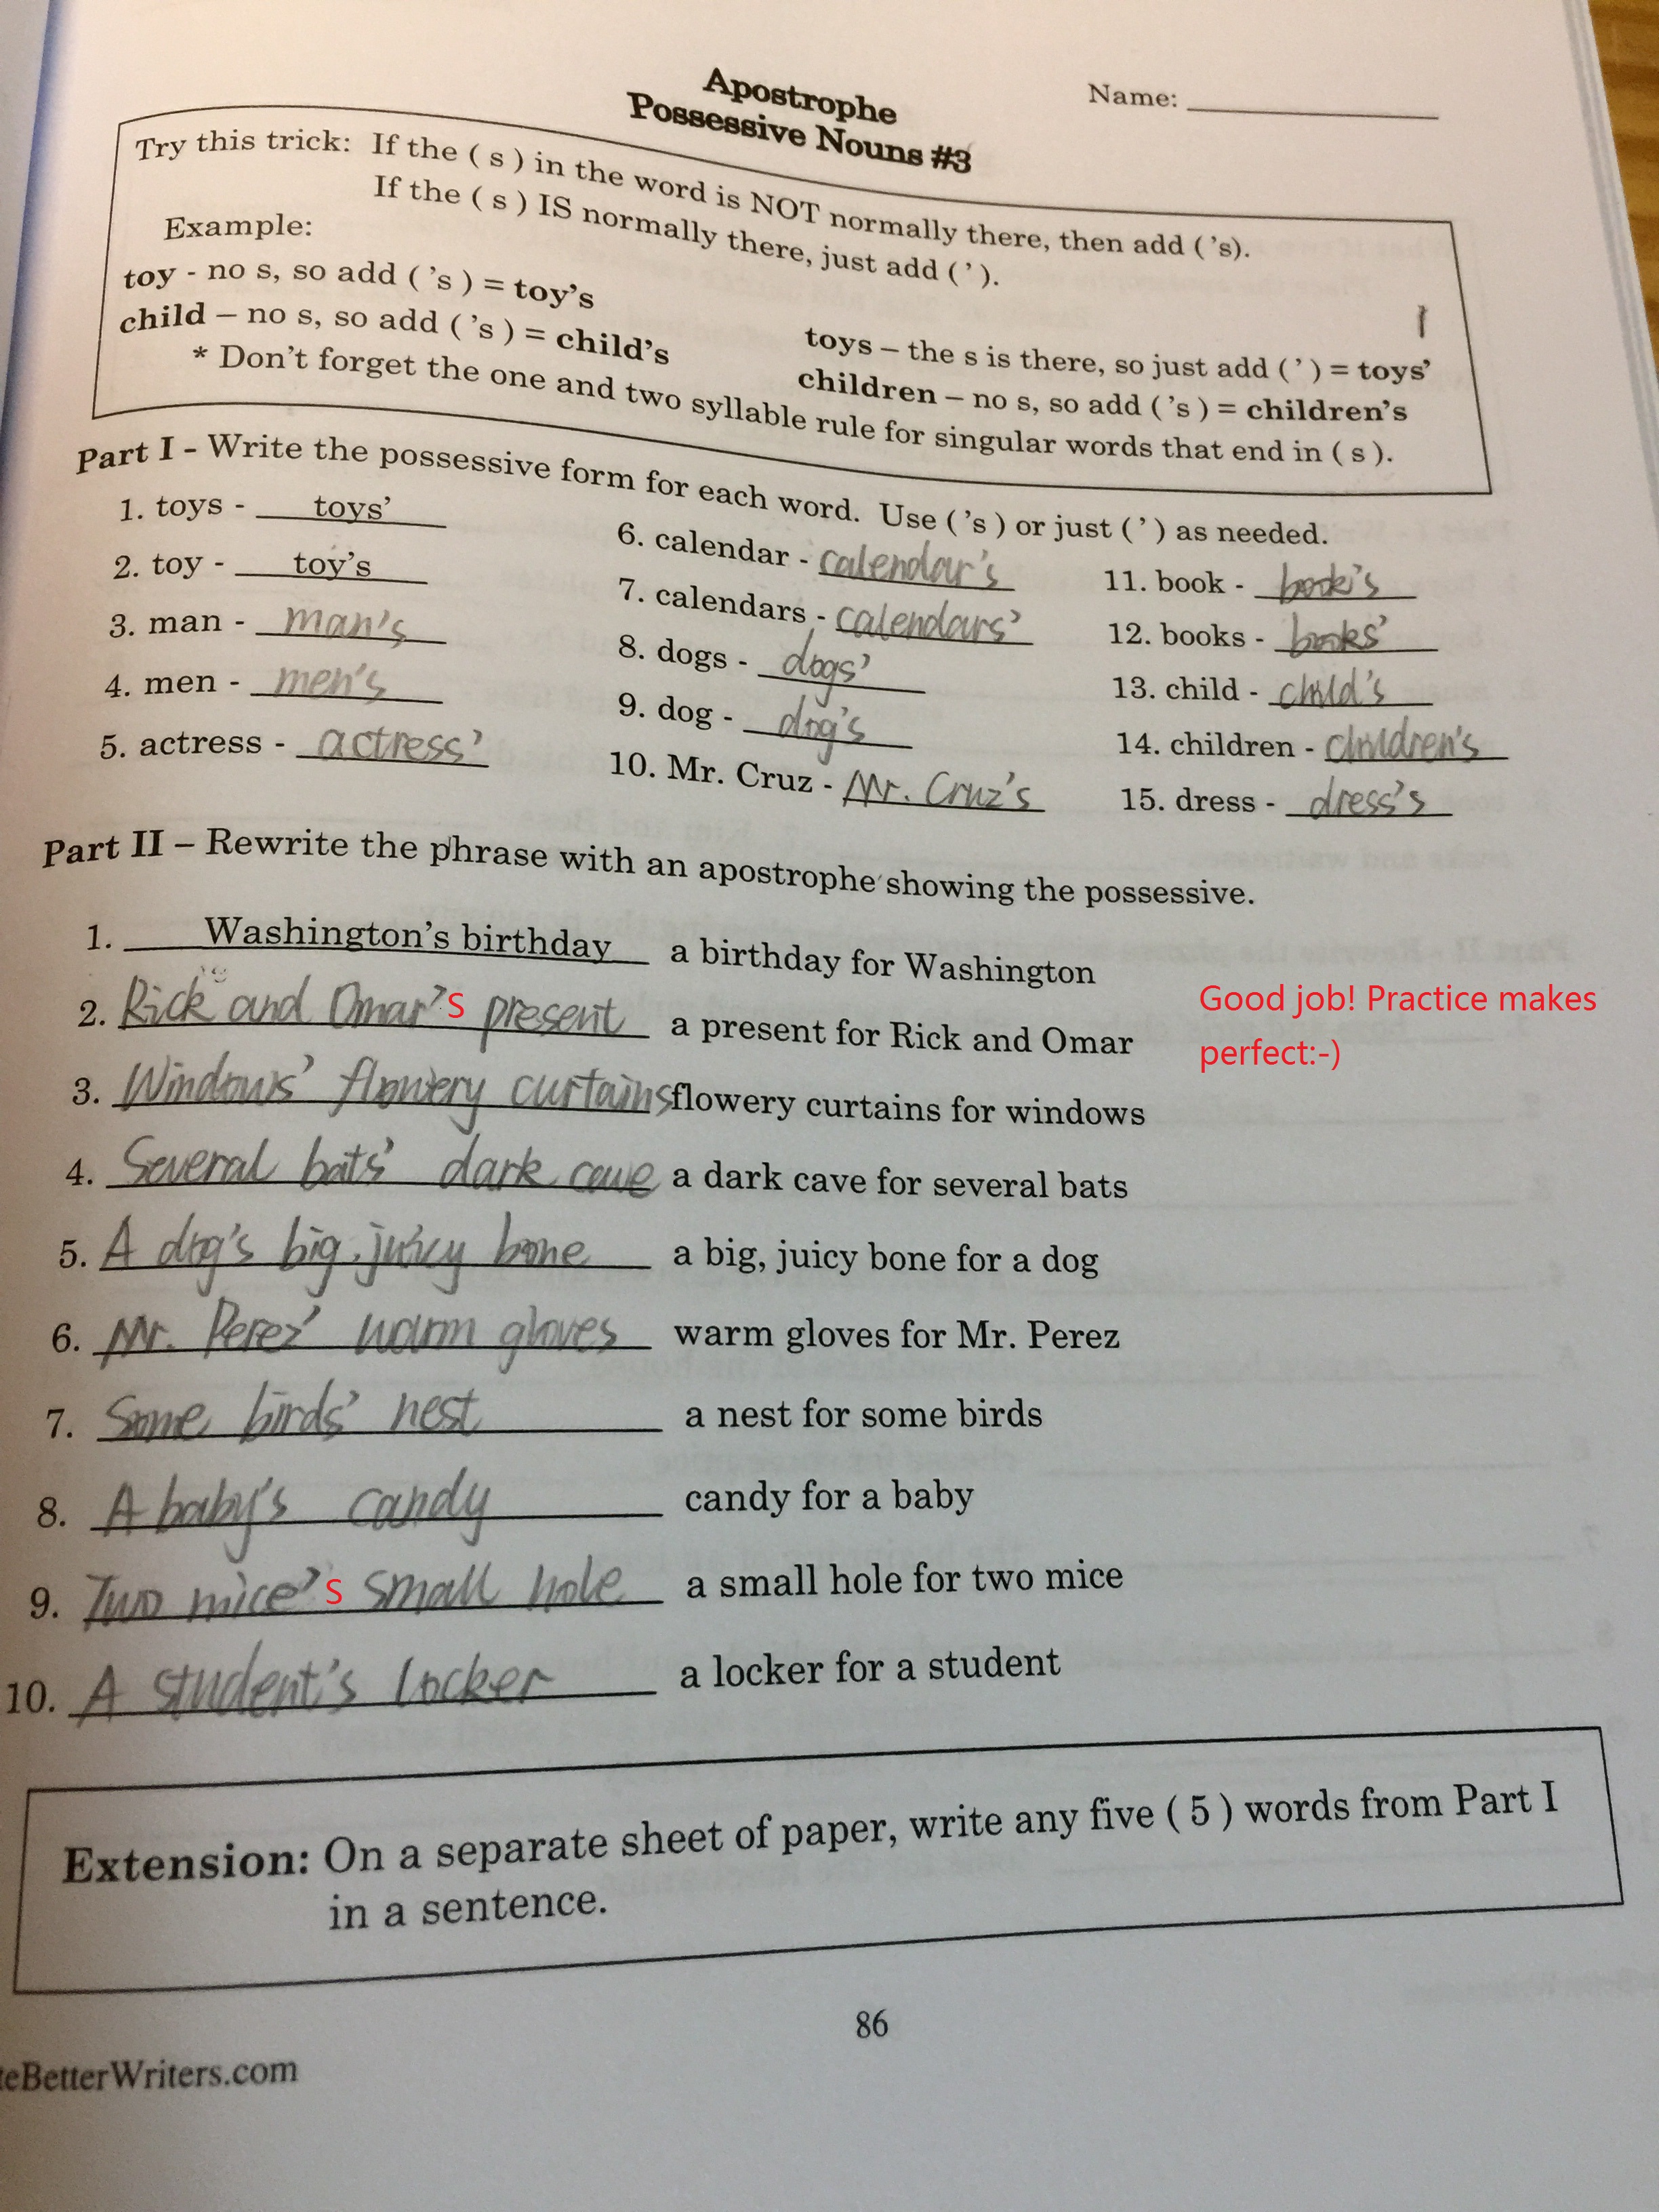 Apostrophe
Possessive Nouns #3
Name:
Try this trick: If the ( s ) in the word is NOT normally there, then add ( ’s).
If the ( s ) IS normally there, just add ( ’ ).
Example:
toy - no s, so add ( ’s ) = toy’s
toys – the s is there, so just add ( ’ ) = toys’
child – no s, so add ( ’s ) = child’s
children – no s, so add ( ’s ) = children’s
* Don’t forget the one and two syllable rule for singular words that end in ( s ).
Part I - Write the possessive form for each word. Use ( ’s ) or just ( ’ ) as needed.
1. toys - toys’
2. toy - toy’s
3. man - man's
4. men - men's
5. actress - actress'
6. calendar - calendar's
7. calendars - calendars'
8. dogs - dogs'
9. dog - dog's
10. Mr. Cruz - Mr. Cruz's
11. book - book's
12. books - books'
13. child - child's
14. children - children's
15. dress - dress's
Part II – Rewrite the phrase with an apostrophe showing the possessive.
1. Washington’s birthday a birthday for Washington
2. Rick and Omar's present a present for Rick and Omar
Good job! Practice makes
perfect:-)
3. Windows' flowery curtains flowery curtains for windows
4. Several bats' dark cave a dark cave for several bats
5. A dog's big, juicy bone a big, juicy bone for a dog
6. Mr. Perez' warm gloves warm gloves for Mr. Perez
7. Some birds' nest a nest for some birds
8. A baby's candy candy for a baby
9. Two mice's small hole a small hole for two mice
10. A student's locker a locker for a student
Extension: On a separate sheet of paper, write any five ( 5 ) words from Part I
in a sentence.
86
teBetterWriters.com